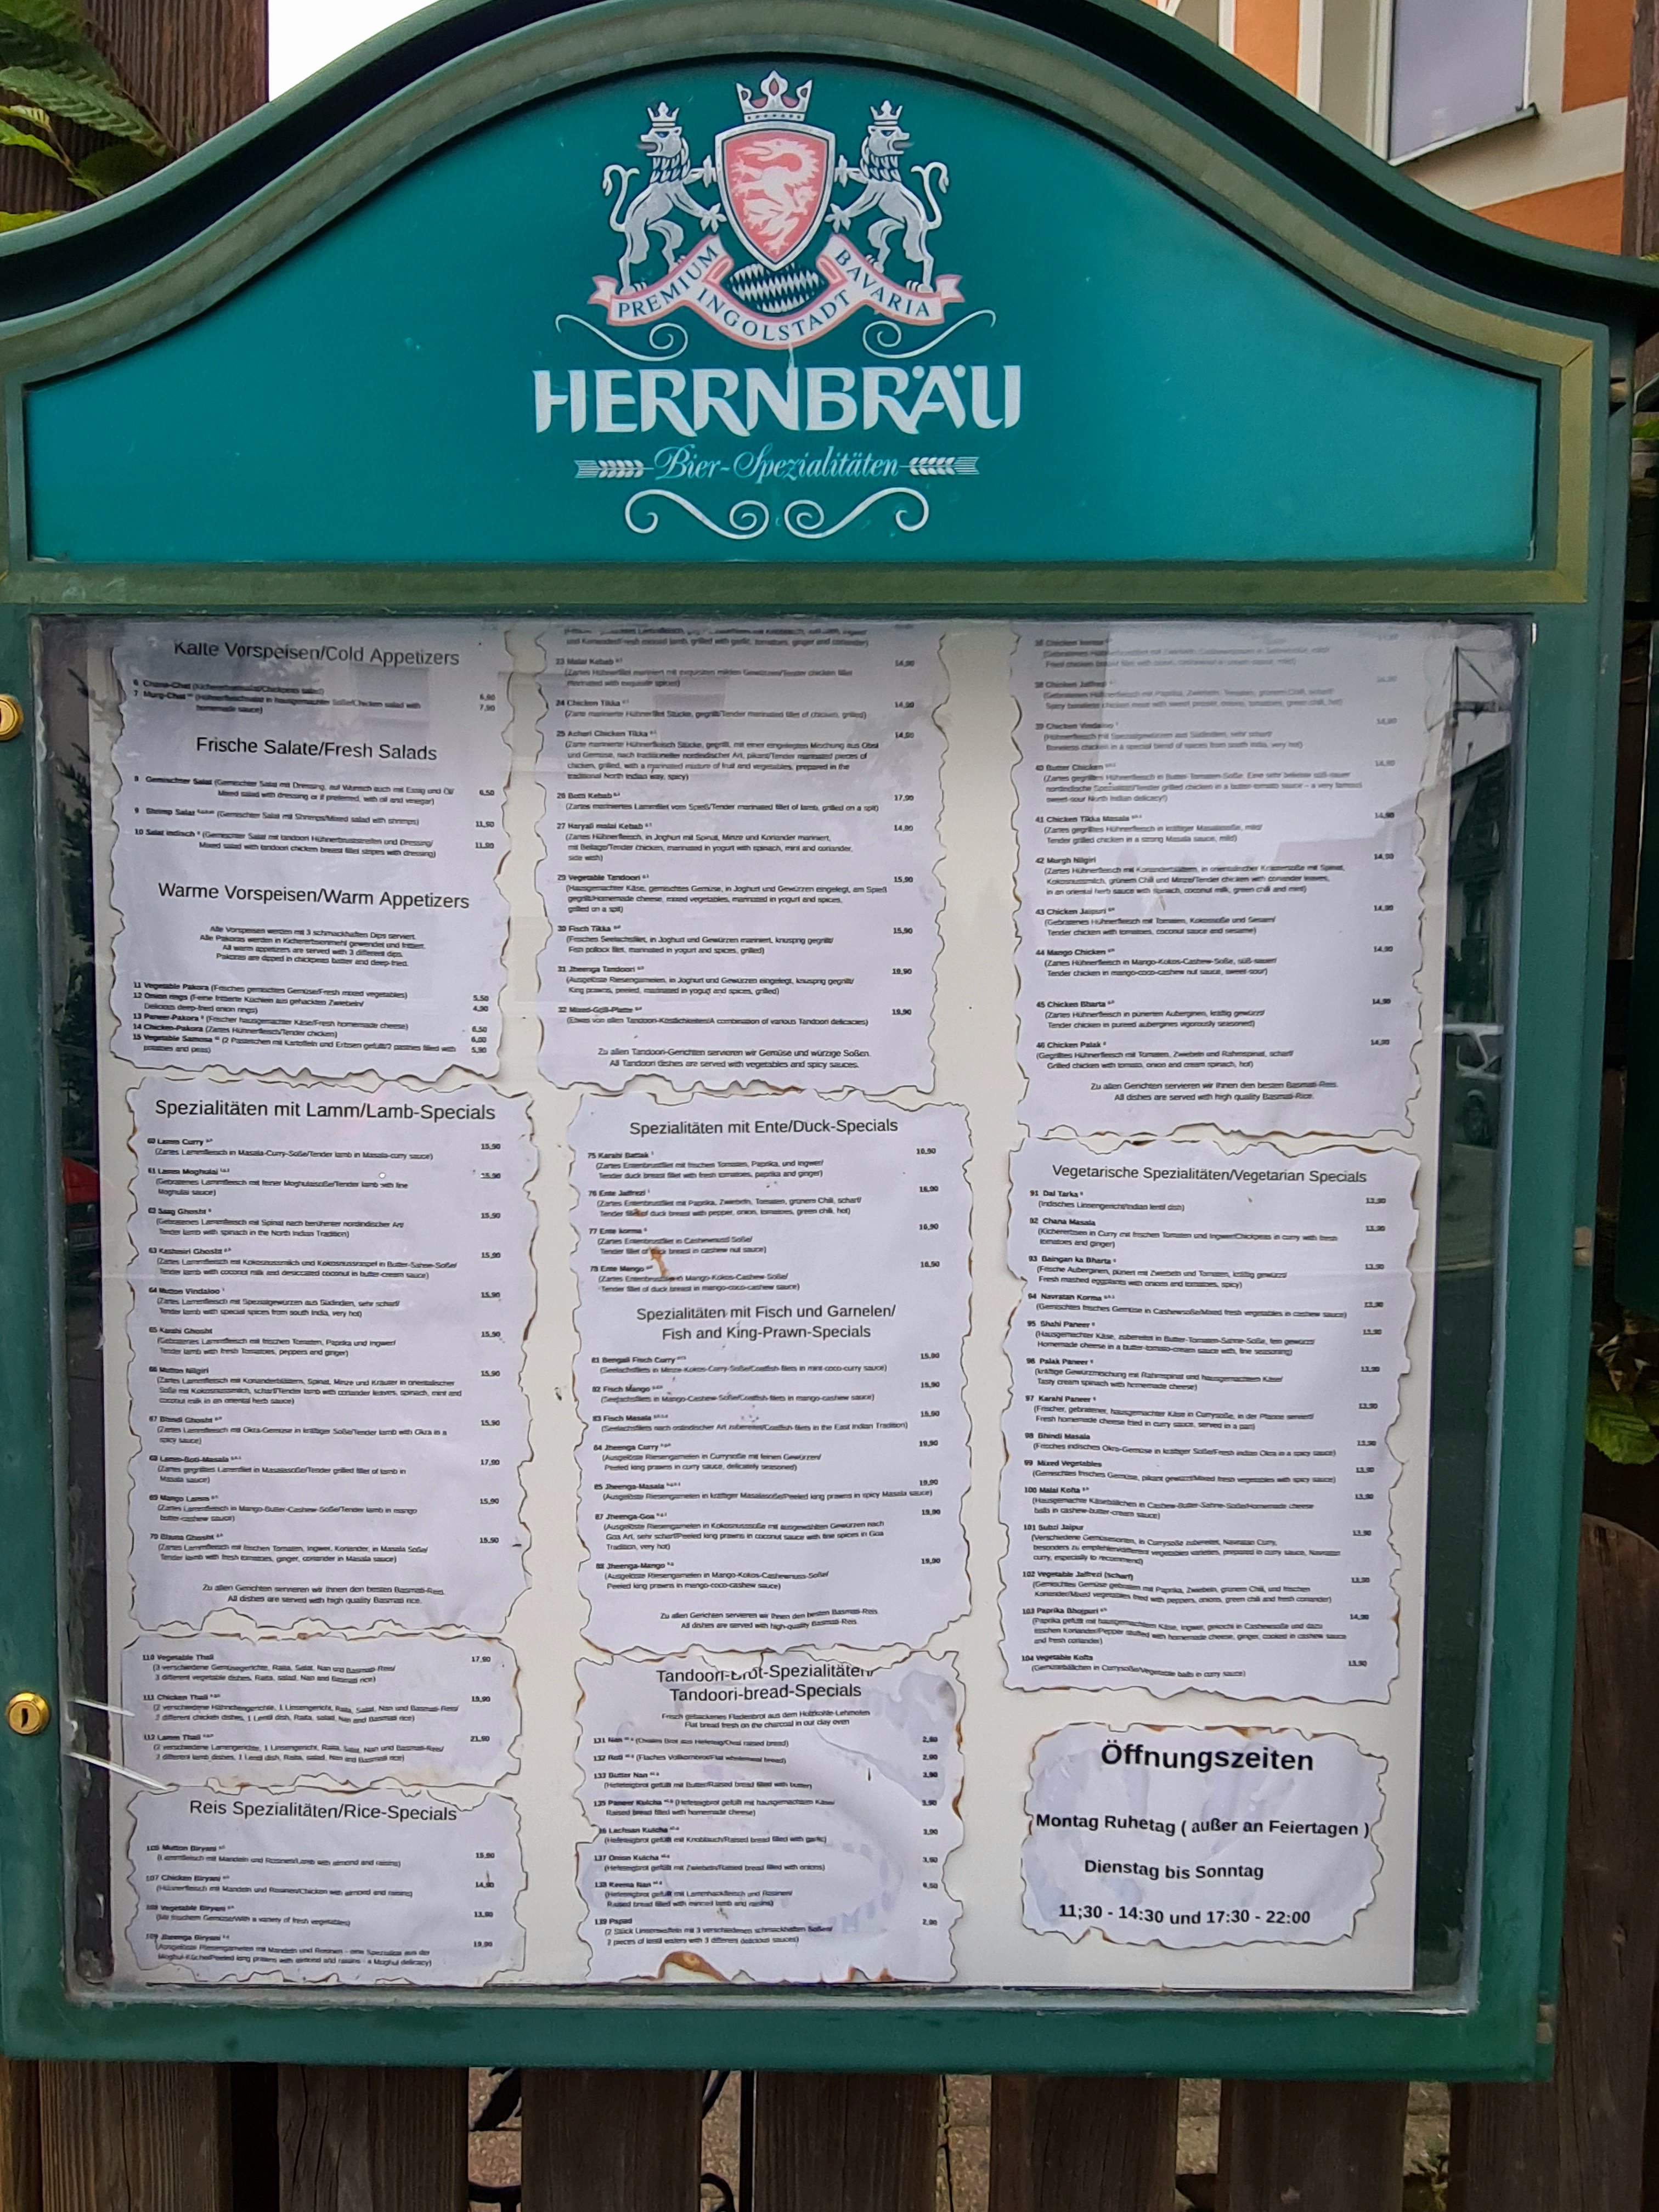 PREMIUM BAVARIA
INGOLSTADT
HERRNBRÄU
Bier-Spezialitäten
Kalte Vorspeisen/Cold Appetizers
6 Chana-Chat (Kichererbsensalat/Chickpeas salad) 6,60
7 Murg-Chat (Hühnerfleischsalat in hausgemachter Soße/Chicken salad with 7,90
homemade sauce)
Frische Salate/Fresh Salads
8 Gemischter Salat (Gemischter Salat mit Dressing, auf Wunsch auch mit Essig und Öl/ 6,50
Mixed salad with dressing or if preferred, with oil and vinegar)
9 Shrimp Salat (Gemischter Salat mit Shrimps/Mixed salad with shrimps) 11,50
10 Salat indisch (Gemischter Salat mit tandoori Hühnerbruststreifen und Dressing/
Mixed salad with tandoori chicken breast fillet stripes with dressing)
Warme Vorspeisen/Warm Appetizers
Alle Vorspeisen werden mit 3 schmackhaften Dips serviert.
Alle Pakoras werden in Kichererbsenmehl gewendet und frittiert.
All warm appetizers are served with 3 different dips.
Pakoras are dipped in chickpeas batter and deep-fried.
11 Vegetable Pakora (Frisches gemischtes Gemüse/Fresh mixed vegetables) 5,50
12 Onion rings (Feine frittierte Küchlein aus gehackten Zwiebeln/ 4,90
Delicious deep-fried onion rings)
13 Paneer-Pakora (Frischer hausgemachter Käse/Fresh homemade cheese) 6,50
14 Chicken-Pakora (Zartes Hühnerfleisch/Tender chicken) 6,00
15 Vegetable Samosa (2 Pastetchen mit Kartoffeln und Erbsen gefüllt/2 pastries filled with 5,90
potatoes and peas)
Spezialitäten mit Lamm/Lamb-Specials
60 Lamm Curry 15,90
(Zartes Lammfleisch in Masala-Curry-Soße/Tender lamb in Masala-curry sauce)
61 Lamm Moghulai 15,90
(Gebratenes Lammfleisch mit feiner Moghulaisoße/Tender lamb with fine
Moghulai sauce)
62 Saag Ghosht 15,90
(Gebratenes Lammfleisch mit Spinat nach berühmter nordindischer Art/
Tender lamb with spinach in the North Indian Tradition)
63 Kashmiri Ghosht 15,90
(Zartes Lammfleisch mit Kokosnussmilch und Kokosnussraspel in Butter-Sahne-Soße/
Tender lamb with coconut milk and desiccated coconut in butter-cream sauce)
64 Mutton Vindaloo 15,90
(Zartes Lammfleisch mit Spezialgewürzen aus Südindien, sehr scharf/
Tender lamb with special spices from south India, very hot)
65 Karahi Ghosht 15,90
(Gebratenes Lammfleisch mit frischen Tomaten, Paprika und Ingwer/
Tender lamb with fresh Tomatoes, peppers and ginger)
66 Mutton Nilgiri 15,90
(Zartes Lammfleisch mit Korianderblättern, Spinat, Minze und Kräuter in orientalischer
Soße mit Kokosnussmilch, scharf/Tender lamb with coriander leaves, spinach, mint and
coconut milk in an oriental herb sauce)
67 Bhindi Ghosht 15,90
(Zartes Lammfleisch mit Okra-Gemüse in kräftiger Soße/Tender lamb with Okra in a
spicy sauce)
68 Lamm-Boti-Masala 17,90
(Zartes gegrilltes Lammfilet in Masalasoße/Tender grilled fillet of lamb in
Masala sauce)
69 Mango Lamm 15,90
(Zartes Lammfleisch in Mango-Butter-Cashew-Soße/Tender lamb in mango
butter-cashew sauce)
70 Bhuna Ghosht 15,90
(Zartes Lammfleisch mit frischen Tomaten, Ingwer, Koriander, in Masala Soße/
Tender lamb with fresh tomatoes, ginger, coriander in Masala sauce)
Zu allen Gerichten servieren wir Ihnen den besten Basmati-Reis.
All dishes are served with high quality Basmati rice.
110 Vegetable Thali 17,90
(3 verschiedene Gemüsegerichte, Raita, Salat, Nan und Basmati-Reis/
3 different vegetable dishes, Raita, salad, Nan and Basmati rice)
111 Chicken Thali 19,90
(2 verschiedene Hähnchengerichte, 1 Linsengericht, Raita, Salat, Nan und Basmati-Reis/
2 different chicken dishes, 1 Lentil dish, Raita, salad, Nan and Basmati rice)
112 Lamm Thali 21,90
(2 verschiedene Lammgerichte, 1 Linsengericht, Raita, Salat, Nan und Basmati-Reis/
2 different lamb dishes, 1 Lentil dish, Raita, salad, Nan and Basmati rice)
Reis Spezialitäten/Rice-Specials
Mutton Biryani 15,90
(Lammfleisch mit Mandeln und Rosinen/Lamb with almond and raisins)
107 Chicken Biryani 14,90
(Hühnerfleisch mit Mandeln und Rosinen/Chicken with almond and raisins)
108 Vegetable Biryani 13,90
(Mit frischem Gemüse/With a variety of fresh vegetables)
109 Jheenga Biryani 19,90
(Ausgelöste Riesengarnelen mit Mandeln und Rosinen - eine Spezialität aus der
Moghul-Küche/Peeled king prawns with almond and raisins - a Moghul delicacy)
und Koriander/Fresh minced lamb, grilled with garlic, tomatoes, ginger and coriander)
23 Malai Kebab 14,90
(Zartes Hühnerfilet mariniert mit exquisiten milden Gewürzen/Tender chicken fillet
marinated with exquisite spices)
24 Chicken Tikka 14,90
(Zarte marinierte Hühnerfilet Stücke, gegrillt/Tender marinated fillet of chicken, grilled)
25 Achari Chicken Tikka 14,90
(Zarte marinierte Hühnerfleisch Stücke, gegrillt, mit einer eingelegten Mischung aus Obst
und Gemüse, nach traditioneller nordindischer Art, pikant/Tender marinated pieces of
chicken, grilled, with a marinated mixture of fruit and vegetables, prepared in the
traditional North Indian way, spicy)
26 Botti Kebab 17,90
(Zartes mariniertes Lammfilet vom Spieß/Tender marinated fillet of lamb, grilled on a spit)
27 Haryali malai Kebab 14,90
(Zartes Hühnerfleisch, in Joghurt mit Spinat, Minze und Koriander mariniert,
mit Beilage/Tender chicken, marinated in yogurt with spinach, mint and coriander,
side wish)
29 Vegetable Tandoori 15,90
(Hausgemachter Käse, gemischtes Gemüse, in Joghurt und Gewürzen eingelegt, am Spieß
gegrillt/Homemade cheese, mixed vegetables, marinated in yogurt and spices,
grilled on a spit)
30 Fisch Tikka 15,90
(Frisches Seelachsfilet, in Joghurt und Gewürzen mariniert, knusprig gegrillt/
Fish pollock filet, marinated in yogurt and spices, grilled)
31 Jheenga Tandoori 19,90
(Ausgelöste Riesengarnelen, in Joghurt und Gewürzen eingelegt, knusprig gegrillt/
King prawns, peeled, marinated in yogurt and spices, grilled)
32 Mixed-Grill-Platte 19,90
(Etwas von allen Tandoori-Köstlichkeiten/A combination of various Tandoori delicacies)
Zu allen Tandoori-Gerichten servieren wir Gemüse und würzige Soßen.
All Tandoori dishes are served with vegetables and spicy sauces.
Spezialitäten mit Ente/Duck-Specials
75 Karahi Battak 16,90
(Zartes Entenbrustfilet mit frischen Tomaten, Paprika, und Ingwer/
Tender duck breast fillet with fresh tomatoes, paprika and ginger)
76 Ente Jalfrezi 16,90
(Zartes Entenbrustfilet mit Paprika, Zwiebeln, Tomaten, grünem Chili, scharf/
Tender fillet of duck breast with pepper, onion, tomatoes, green chili, hot)
77 Ente korma 16,90
(Zartes Entenbrustfilet in Cashewnuss Soße/
Tender fillet of duck breast in cashew nut sauce)
Ente Mango 16,90
(Zartes Entenbrustfilet in Mango-Kokos-Cashew-Soße/
Tender fillet of duck breast in mango-coco-cashew sauce)
Spezialitäten mit Fisch und Garnelen/
Fish and King-Prawn-Specials
81 Bengali Fisch Curry 15,90
(Seelachsfilets in Minze-Kokos-Curry-Soße/Coalfish-filets in mint-coco-curry sauce)
82 Fisch Mango 15,90
(Seelachsfilets in Mango-Cashew-Soße/Coalfish-filets in mango-cashew sauce)
83 Fisch Masala 15,90
(Seelachsfilets nach ostindischer Art zubereitet/Coalfish-filets in the East Indian Tradition)
84 Jheenga Curry 19,90
(Ausgelöste Riesengarnelen in Currysoße mit feinen Gewürzen/
Peeled king prawns in curry sauce, delicately seasoned)
85 Jheenga-Masala 19,90
(Ausgelöste Riesengarnelen in kräftiger Masalasoße/Peeled king prawns in spicy Masala sauce)
87 Jheenga-Goa 19,90
(Ausgelöste Riesengarnelen in Kokosnusssoße mit ausgewählten Gewürzen nach
Goa Art, sehr scharf/Peeled king prawns in coconut sauce with fine spices in Goa
Tradition, very hot)
88 Jheenga-Mango 19,90
(Ausgelöste Riesengarnelen in Mango-Kokos-Cashewnuss-Soße/
Peeled king prawns in mango-coco-cashew sauce)
Zu allen Gerichten servieren wir Ihnen den besten Basmati-Reis.
All dishes are served with high-quality Basmati-Rice.
Tandoori-Brot-Spezialitäten/
Tandoori-bread-Specials
Frisch gebackenes Fladenbrot aus dem Holzkohle-Lehmofen
Flat bread fresh on the charcoal in our clay oven
131 Nan (Ovales Brot aus Hefeteig/Oval raised bread)
132 Roti (Flaches Vollkornbrot/Flat wholemeal bread)
133 Butter Nan 3,90
(Hefeteigbrot gefüllt mit Butter/Raised bread filled with butter)
Paneer Kulcha (Hefeteigbrot gefüllt mit hausgemachtem Käse/ 3,90
Raised bread filled with homemade cheese)
Lachsan Kulcha 3,90
(Hefeteigbrot gefüllt mit Knoblauch/Raised bread filled with garlic)
137 Onion Kulcha 3,90
(Hefeteigbrot gefüllt mit Zwiebeln/Raised bread filled with onions)
138 Keema Nan
(Hefeteigbrot gefüllt mit Lammhackfleisch und Rosinen/
Raised bread filled with minced lamb and raisins)
139 Papad 2,90
(2 Stück Linsenwaffeln mit 3 verschiedenen schmackhaften Soßen/
2 pieces of lentil wafers with 3 differens delicious sauces)
Chicken korma
38 Chicken Jalfrezi
(Gebratenes Hühnerfleisch mit Paprika, Zwiebeln, Tomaten, grünem Chili, scharf/
Spicy boneless chicken meat with sweet pepper, onions, tomatoes, green chili, hot)
39 Chicken Vindaloo 14,90
(Hühnerfleisch mit Spezialgewürzen aus Südindien, sehr scharf/
Boneless chicken in a special blend of spices from south India, very hot)
40 Butter Chicken 14,90
(Zartes gegrilltes Hühnerfleisch in Butter-Tomaten-Soße. Eine sehr beliebte süß-saure
nordindische Spezialität/Tender grilled chicken in a butter-tomato sauce – a very famous
sweet-sour North Indian delicacy)
41 Chicken Tikka Masala 14,90
(Zartes gegrilltes Hühnerfleisch in kräftiger Masalasoße, mild/
Tender grilled chicken in a strong Masala sauce, mild)
42 Murgh Nilgiri 14,90
(Zartes Hühnerfleisch mit Korianderblättern, in orientalischer Kräutersoße mit Spinat,
Kokosnussmilch, grünem Chili und Minze/Tender chicken with coriander leaves,
in an oriental herb sauce with spinach, coconut milk, green chili and mint)
43 Chicken Jaipuri 14,90
(Gebratenes Hühnerfleisch mit Tomaten, Kokossoße und Sesam/
Tender chicken with tomatoes, coconut sauce and sesame)
44 Mango Chicken 14,90
(Zartes Hühnerfleisch in Mango-Kokos-Cashew-Soße, süß-sauer/
Tender chicken in mango-coco-cashew nut sauce, sweet-sour)
45 Chicken Bharta 14,90
(Zartes Hühnerfleisch in pürierten Auberginen, kräftig gewürzt/
Tender chicken in pureed aubergines vigorously seasoned)
46 Chicken Palak 14,90
(Gegrilltes Hühnerfleisch mit Tomaten, Zwiebeln und Rahmspinat, scharf/
Grilled chicken with tomato, onion and cream spinach, hot)
Zu allen Gerichten servieren wir Ihnen den besten Basmati-Reis.
All dishes are served with high quality Basmati-Rice.
Vegetarische Spezialitäten/Vegetarian Specials
91 Dal Tarka 13,90
(Indisches Linsengericht/Indian lentil dish)
92 Chana Masala 13,90
(Kichererbsen in Curry mit frischen Tomaten und Ingwer/Chickpeas in curry with fresh
tomatoes and ginger)
93 Baingan ka Bharta 13,90
(Frische Auberginen, püriert mit Zwiebeln und Tomaten, kräftig gewürzt/
Fresh mashed eggplants with onions and tomatoes, spicy)
94 Navratan Korma 13,90
(Gemischtes frisches Gemüse in Cashewsoße/Mixed fresh vegetables in cashew sauce)
95 Shahi Paneer 13,90
(Hausgemachter Käse, zubereitet in Butter-Tomaten-Sahne-Soße, fein gewürzt/
Homemade cheese in a butter-tomato-cream sauce with, fine seasoning)
96 Palak Paneer 13,90
(kräftige Gewürzmischung mit Rahmspinat und hausgemachtem Käse/
Tasty cream spinach with homemade cheese)
97 Karahi Paneer 13,90
(Frischer, gebratener, hausgemachter Käse in Currysoße, in der Pfanne serviert/
Fresh homemade cheese fried in curry sauce, served in a pan)
98 Bhindi Masala 13,90
(Frisches indisches Okra-Gemüse in kräftiger Soße/Fresh indian Okra in a spicy sauce)
99 Mixed Vegetables 13,90
(Gemischtes frisches Gemüse, pikant gewürzt/Mixed fresh vegetables with spicy sauce)
100 Malai Kofta 13,90
(Hausgemachte Käsebällchen in Cashew-Butter-Sahne-Soße/Homemade cheese
balls in cashew-butter-cream sauce)
101 Subzi Jaipur 13,90
(Verschiedene Gemüsesorten, in Currysoße zubereitet, Navratan Curry,
besonders zu empfehlen/different vegetables varieties, prepared in curry sauce, Navratan
curry, especially to recommend)
102 Vegetable Jalfrezi (scharf) 13,90
(Gemischtes Gemüse gebraten mit Paprika, Zwiebeln, grünem Chili, und frischen
Koriander/Mixed vegetables fried with peppers, onions, green chili and fresh coriander)
103 Paprika Bhojpuri 14,90
(Paprika gefüllt mit hausgemachtem Käse, Ingwer, gekocht in Cashewsoße und dazu
frischen Koriander/Pepper stuffed with homemade cheese, ginger, cooked in cashew sauce
and fresh coriander)
104 Vegetable Kofta 13,90
(Gemüsebällchen in Currysoße/Vegetable balls in curry sauce)
Öffnungszeiten
Montag Ruhetag ( außer an Feiertagen )
Dienstag bis Sonntag
11;30 - 14:30 und 17:30 - 22:00